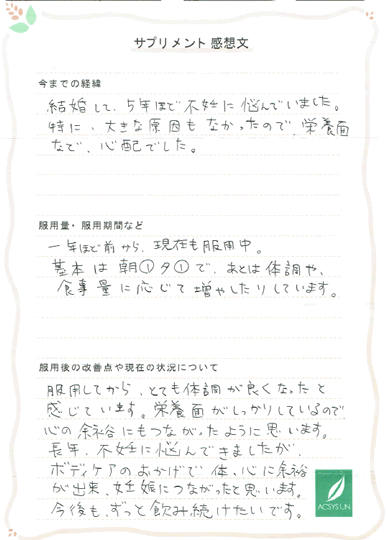 サプリメント 感想文
今までの経緯
結婚して、5年ほど不妊に悩んでいました。
特に、大きな原因もなかったので、栄養面
など、心配でした。
服用量・服用期間など
一年ほど前から、現在も服用中。
基本は朝①夕①で、あとは体調や、
食事量に応じて増やしたりしています。
服用後の改善点や現在の状況について
服用してから、とても体調が良くなったと
感じています。栄養面がしっかりしているので、
心の余裕にもつながったように思います。
長年、不妊に悩んできましたが、
ボディケアのおかげで体、心に余裕
が出来、妊娠につながったと思います。
今後も、ずっと飲み続けたいです。
ACSYSUN.